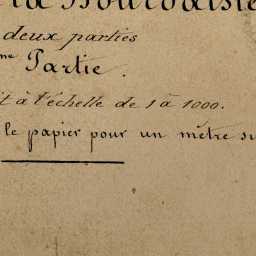 la Bourdaisi
deux parties
me Partie.
t à l'échelle de 1 à 1000.
le papier pour un mètre su